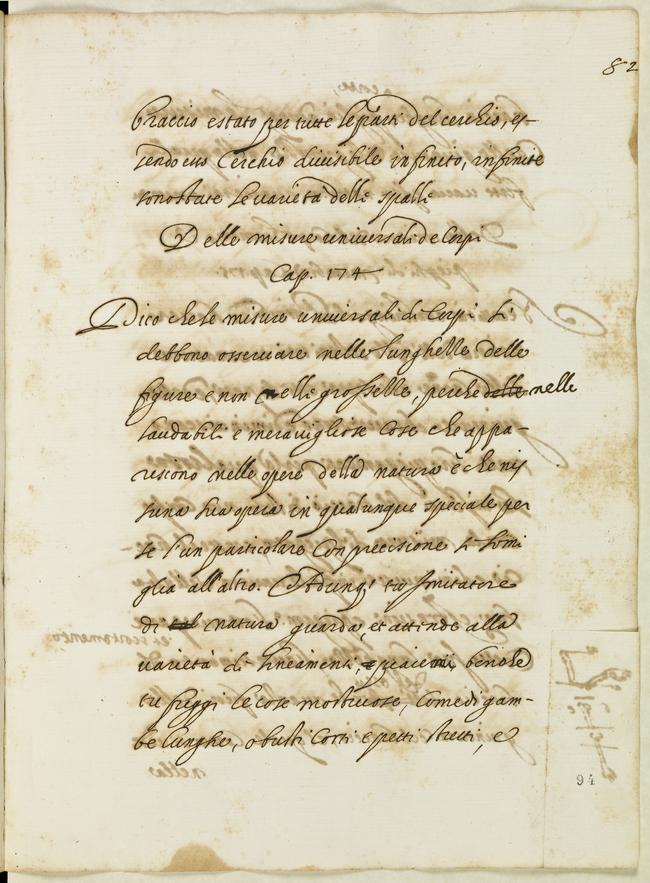 82
braccio è stato per tutte le parti del cerchio, es-
sendo esso Cerchio divisibile infinito, infinite
sono state le varietà delle spalle
Delle misure universali de Corpi
Cap. 174
Dico che le misure universali di Corpi si
debbono osservare nelle lunghezze delle
figure e non nelle grossezze, perche delle nelle
laudabili e meravigliose Cose che appa-
riscono nelle opere della natura è che nis
suna sua opera in qualunque speciale per
se l'un particolare Con precisione si simi
glia all'altro. Adunq; tu Imitatore
di natura guarda, et attende alla
varietà di lineamenti, piacemi, bene
tu fuggi le cose mostruose, Come di gam-
be lunghe, o busti Corti e petti stretti, e
nella
94